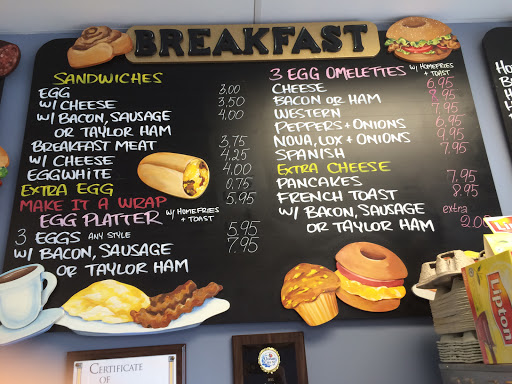 BREAKFAST
SANDWICHES
EGG 3.00
W/ CHEESE 3.50
W/ BACON, SAUSAGE 4.00
OR TAYLOR HAM
BREAKFAST MEAT 3.75
W/ CHEESE 4.25
EGGWHITE 4.00
EXTRA EGG 0.75
MAKE IT A WRAP 5.95
EGG PLATTER W/ HOMEFRIES
+ TOAST
3 EGGS ANY STYLE 5.95
W/ BACON, SAUSAGE 7.95
OR TAYLOR HAM
3 EGG OMELETTES W/ HOMEFRIES
+ TOAST
CHEESE 6.95
BACON OR HAM 7.95
WESTERN 7.95
PEPPERS + ONIONS 6.95
NOVA, LOX + ONIONS 9.95
SPANISH 7.95
EXTRA CHEESE
PANCAKES 7.95
FRENCH TOAST 8.95
W/ BACON, SAUSAGE extra
OR TAYLOR HAM 2.0
CERTIFICATE
OF
Lipton